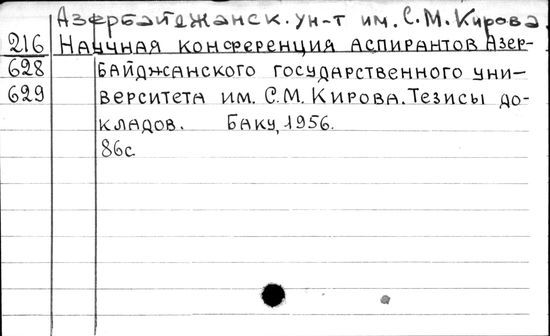 Азербайджанск. ун-т им. С. М. Кирова.
216 Научная конференция аспирантов Азер-
628 байджанского государственного уни-
629 верситета им. С. М. Кирова. Тезисы до-
кладов. Баку, 1956.
86с.